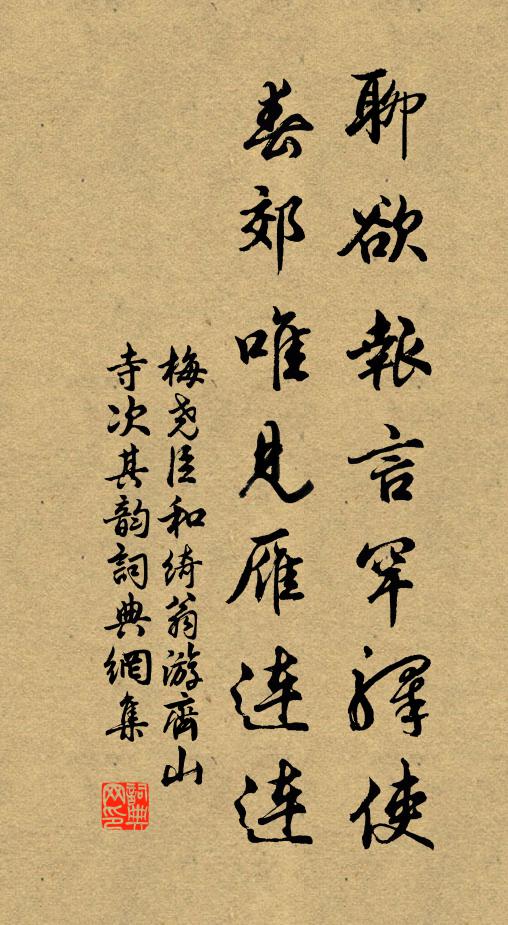 聊欲報言罕驛使
春郊唯見雁連連
梅堯臣和綺翁游齊山
寺次其韵詞典網集
詞典
网印